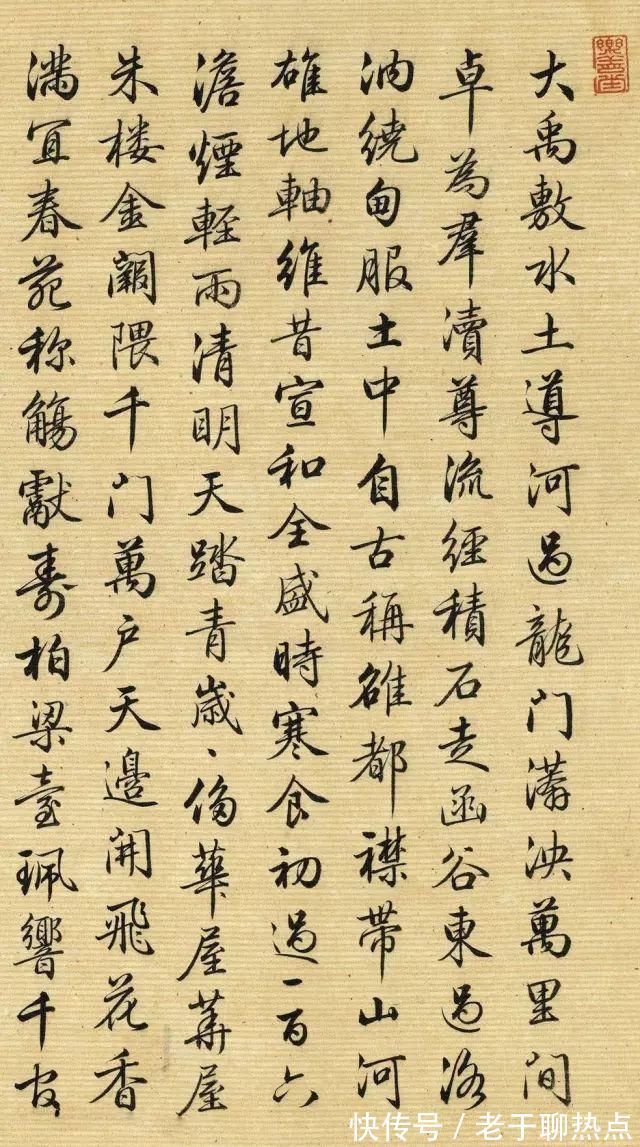 大禹敷水土導河過龍门漭泱萬里间
卓為羣瀆尊流經積石走函谷東過洛
汭繞甸服土中自古稱雄都襟帶山河
雄地軸維昔宣和全盛時寒食初過一百六
澹煙輕雨清明天踏青歲、侈華屋華屋
朱楼金闕隈千门萬户天邊開飛花香
滿宜春苑称觴獻壽柏梁臺珮響千官
快传号 / 老于聊热点